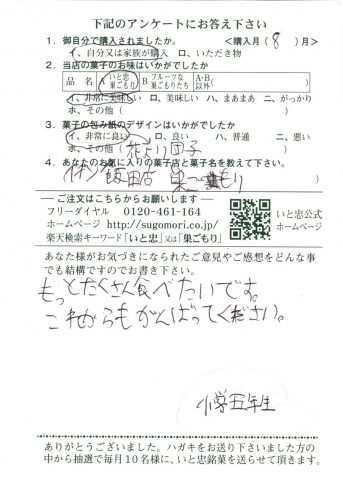 下記のアンケートにお答え下さい
1．御自分で購入されましたか。 ＜購入月（8）月＞
イ、自分又は家族が購入 ロ、いただき物
2．当店の菓子のお味はいかがでしたか
品名 A いと忠巣ごもり B フルーツな巣ごもりたち A･B以外（ ）
イ、非常に美味しい ロ、美味しい ハ、まあまあ ニ、がっかり
ホ、その他（ ）
3．菓子の包み紙のデザインはいかがでしたか
イ、非常に良い ロ、良い ハ、普通 ニ、悪い
ホ、その他（花より団子）
4．あなたのお気に入りの菓子店と菓子名を教えて下さい。
イオン飯田店 巣ごもり
ご注文はこちらからお願いします
フリーダイヤル 0120-461-164
ホームページ http://sugomori.co.jp/
楽天検索キーワード「いと忠」又は「巣ごもり」
いと忠公式
ホームページ
あなた様がお気づきになられたご意見やご感想をどんな事
でも結構ですのでお書き下さい。
もっとたくさん食べたいです。
これからもがんばってください。
小学五年生
ありがとうございました。ハガキをお送り下さいました方の
中から抽選で毎月10名様に、いと忠銘菓を送らせて頂きます。